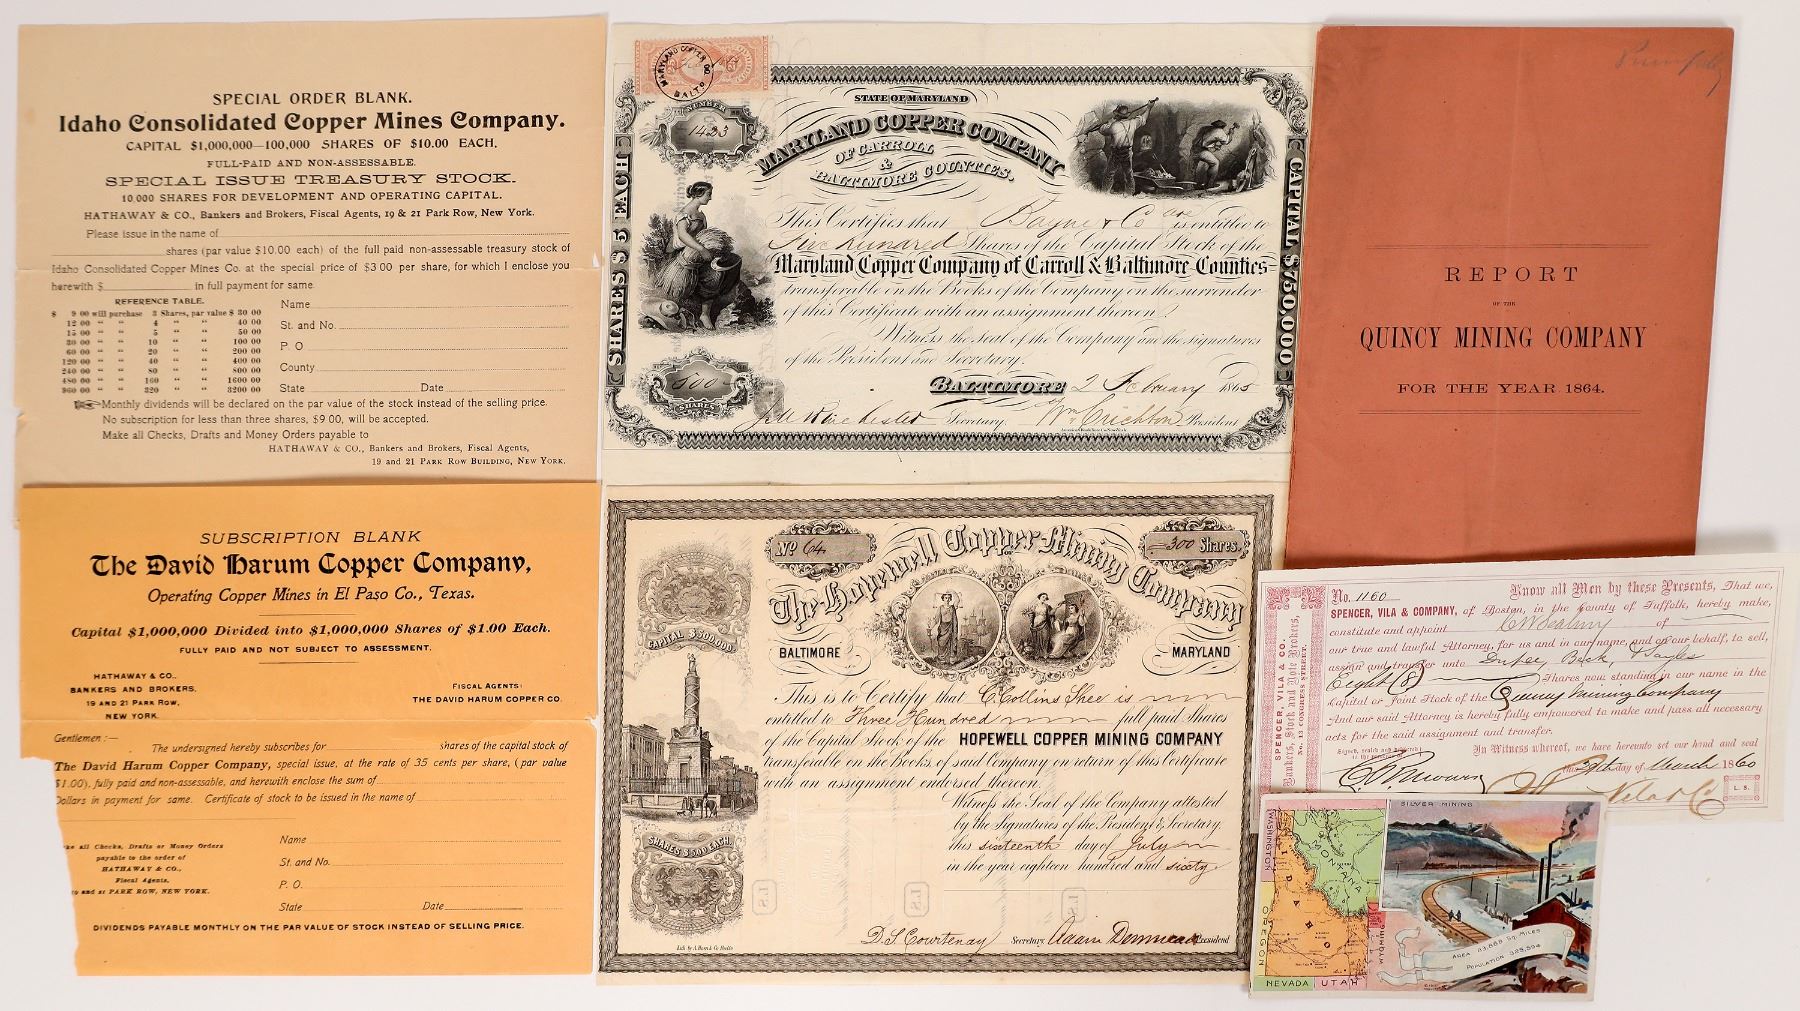 SPECIAL ORDER BLANK.
Idaho Consolidated Copper Mines Company.
CAPITAL $1,000,000—100,000 SHARES OF $10.00 EACH.
FULL-PAID AND NON-ASSESSABLE.
SPECIAL ISSUE TREASURY STOCK.
10,000 SHARES FOR DEVELOPMENT AND OPERATING CAPITAL.
HATHAWAY & CO., Bankers and Brokers, Fiscal Agents, 19 & 21 Park Row, New York.
Please issue in the name of
shares (par value $10.00 each) of the full paid non-assessable treasury stock of
Idaho Consolidated Copper Mines Co. at the special price of $3.00 per share, for which I enclose you
herewith $ in full payment for same.
REFERENCE TABLE.
$ 9 00 will purchase 3 Shares, par value $ 30 00
12 00 " " 4 " " 40 00
15 00 " " 5 " " 50 00
30 00 " " 10 " " 100 00
60 00 " " 20 " " 200 00
120 00 " " 40 " " 400 00
240 00 " " 80 " " 800 00
480 00 " " 160 " " 1600 00
960 00 " " 320 " " 3200 00
Name
St. and No.
P. O.
County
State Date
Monthly dividends will be declared on the par value of the stock instead of the selling price.
No subscription for less than three shares, $9 00, will be accepted.
Make all Checks, Drafts and Money Orders payable to
HATHAWAY & CO., Bankers and Brokers, Fiscal Agents,
19 and 21 PARK ROW BUILDING, NEW YORK.
SUBSCRIPTION BLANK
The David Harum Copper Company,
Operating Copper Mines in El Paso Co., Texas.
Capital $1,000,000 Divided into $1,000,000 Shares of $1.00 Each.
FULLY PAID AND NOT SUBJECT TO ASSESSMENT.
HATHAWAY & CO.,
BANKERS AND BROKERS,
19 AND 21 PARK ROW,
NEW YORK.
FISCAL AGENTS:
THE DAVID HARUM COPPER CO.
Gentlemen:—
The undersigned hereby subscribes for shares of the capital stock of
The David Harum Copper Company, special issue, at the rate of 35 cents per share, (par value
$1.00), fully paid and non-assessable, and herewith enclose the sum of
Dollars in payment for same. Certificate of stock to be issued in the name of
Name
St. and No.
P. O.
State Date
all Checks, Drafts or Money Orders
payable to the order of
HATHAWAY & CO.,
Fiscal Agents,
and 21 PARK ROW, NEW YORK.
DIVIDENDS PAYABLE MONTHLY ON THE PAR VALUE OF STOCK INSTEAD OF SELLING PRICE.
MARYLAND COPPER CO
BALTO
NUMBER
1433
STATE OF MARYLAND
MARYLAND COPPER COMPANY
OF CARROLL
&
BALTIMORE COUNTIES.
SHARES $5 EACH
CAPITAL $750,000
This Certifies that Bayne & Co are entitled to
Five Hundred Shares of the Capital Stock of the
Maryland Copper Company of Carroll & Baltimore Counties
transferable on the Books of the Company on the surrender
of this Certificate with an assignment thereon.
Witness the Seal of the Company and the signatures
of the President and Secretary.
BALTIMORE 2 February 1865
500
SHARES
Winchester Secretary. Wm Crichton President
American Bank Note Co. New York
No 64
300 Shares.
The Hopewell Copper Mining Company
CAPITAL $500,000
BALTIMORE MARYLAND
This is to Certify that C. Collins Shee is
entitled to Three Hundred full paid Shares
of the Capital Stock of the HOPEWELL COPPER MINING COMPANY
transferable on the Books of said Company on return of this Certificate
with an assignment endorsed thereon.
Witness the Seal of the Company attested
by the Signatures of the President & Secretary.
this sixteenth day of July
in the year eighteen hundred and sixty
SHARES $5.00 EACH.
L.S.
L.S.
L.S.
D. S. Courtenay Secretary. Adam Denmead President
Lith. by A. Hoen & Co. Balto
REPORT
OF THE
QUINCY MINING COMPANY
FOR THE YEAR 1864.
SPENCER, VILA & CO.
Bankers, Stock and Note Brokers,
No. 13 CONGRESS STREET.
No. 1160 Know all Men by these Presents, That we,
SPENCER, VILA & COMPANY, of Boston, in the County of Suffolk, hereby make,
constitute and appoint of
our true and lawful Attorney, for us and in our name, and on our behalf, to sell,
assign and transfer unto Dupee, Beck, & Sayles
Eight (8) Shares now standing in our name in the
Capital or Joint Stock of the Quincy Mining Company
And our said Attorney is hereby fully empowered to make and pass all necessary
acts for the said assignment and transfer.
Signed, sealed and delivered
in the presence of
In Witness whereof, we have hereunto set our hand and seal
this 29th day of March 1860
Vila & Co
L. S.
SILVER MINING
WASHINGTON
MONTANA
IDAHO
OREGON
WYOMING
NEVADA
UTAH
AREA SQ. MILES
POPULATION 325,594